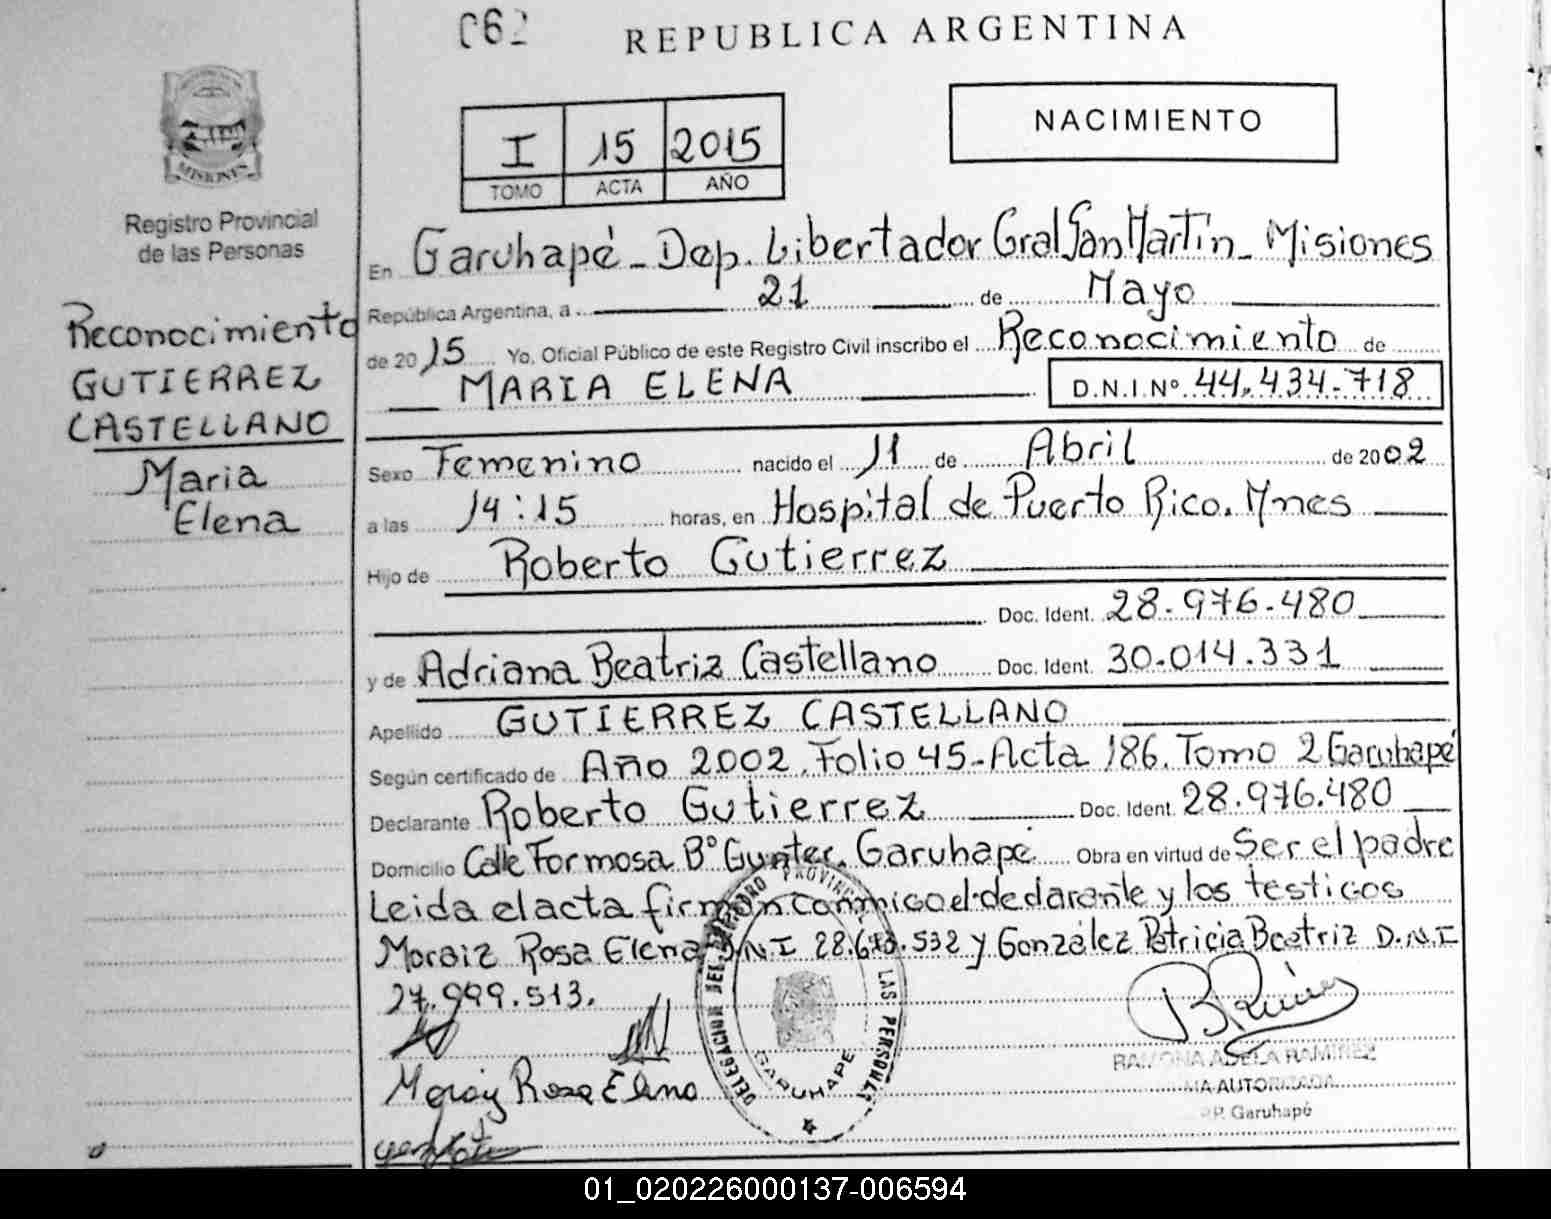 062
REPUBLICA ARGENTINA
NACIMIENTO
I 15 2015
TOMO ACTA AÑO
MISIONES
Registro Provincial
de las Personas
Reconocimiento
GUTIERREZ
CASTELLANO
Maria
Elena
En Garuhapé - Dep. Libertador Gral San Martín - Misiones
República Argentina, a 21 de Mayo
de 2015 Yo, Oficial Público de este Registro Civil inscribo el Reconocimiento de
MARIA ELENA D.N.I.Nº 44.434.718
Sexo Femenino nacido el 11 de Abril de 2002
a las 14:15 horas, en Hospital de Puerto Rico. Mnes
Hijo de Roberto Gutierrez
Doc. Ident. 28.976.480
y de Adriana Beatriz Castellano Doc. Ident. 30.014.331
Apellido GUTIERREZ CASTELLANO
Según certificado de Año 2002. Folio 45-Acta 186. Tomo 2 Garuhapé
Declarante Roberto Gutierrez Doc. Ident. 28.976.480
Domicilio Calle Formosa Bº Gunter. Garuhapé Obra en virtud de Ser el padre
Leida el acta firman conmigo el declarante y los testigos
Moraiz Rosa Elena D.N.I 28. .532 y González Patricia Beatriz D.N.I
27.999.513.
Rosa Elena
DELEGACION DEL REGISTRO PROVINCIAL LAS PERSONAS
GARUHAPE
RAMONA ADELA RAMIREZ
AUTORIZADA
Garuhapé
01_020226000137-006594